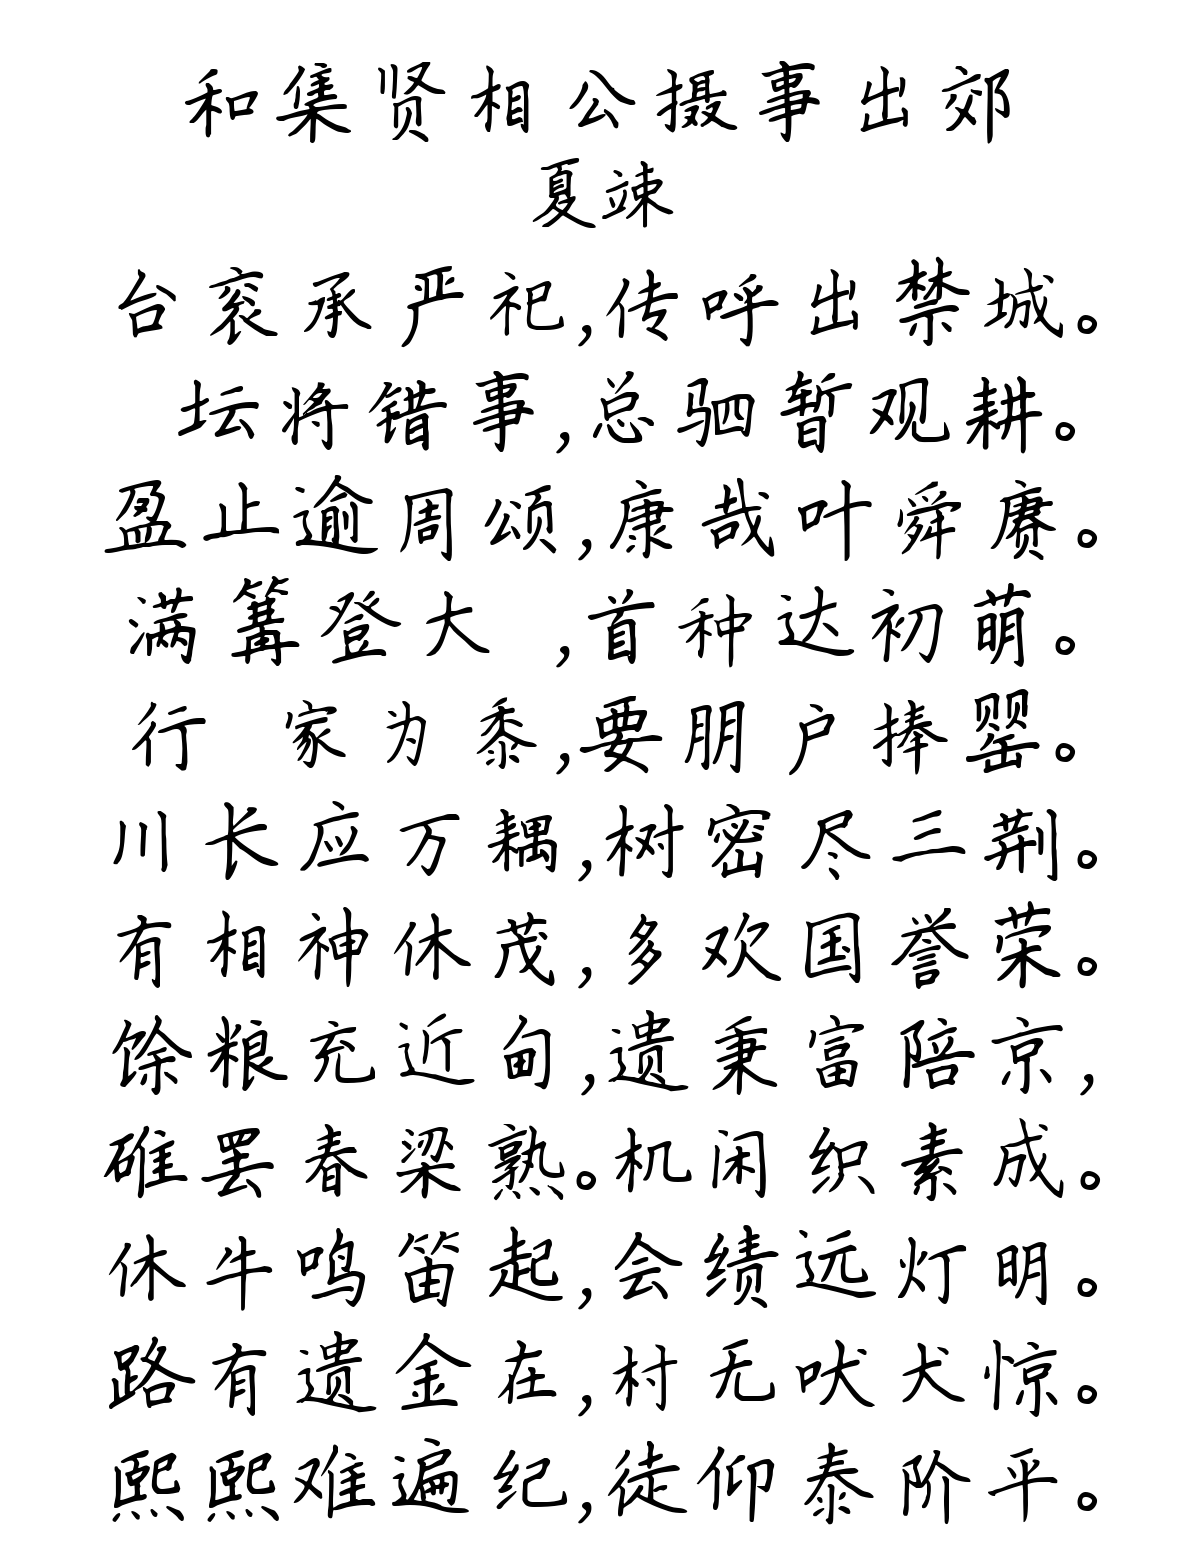 和集贤相公摄事出郊
夏竦
台衮承严祀,传呼出禁城。
坛将错事,总驷暂观耕。
盈止逾周颂,康哉叶舜赓。
满篝登大 ,首种达初萌。
行 家为黍,要朋户捧罂。
川长应万耦,树密尽三荆。
有相神休茂,多欢国誉荣。
馀粮充近甸,遗秉富陪京,
碓罢春粱熟。机闲织素成。
休牛鸣笛起,会绩远灯明。
路有遗金在,村无吠犬惊。
熙熙难遍纪,徒仰泰阶平。